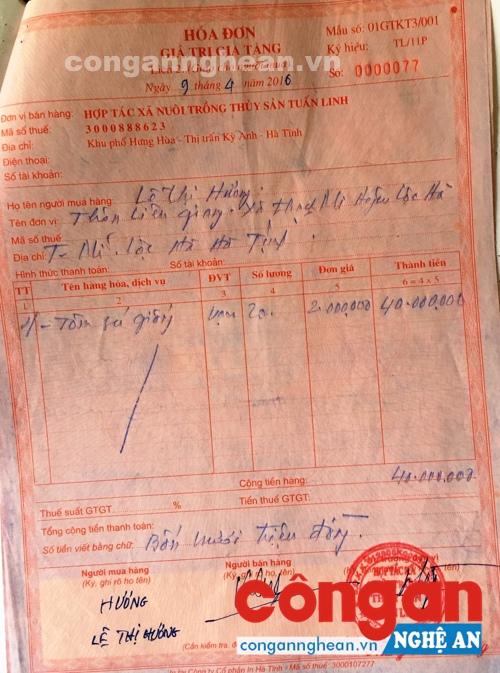 HÓA ĐƠN
GIÁ TRỊ GIA TĂNG
Mẫu số: 01GTKT3/001
Ký hiệu: TL/11P
Số: 0000077
congannghean.vn
Ngày 9 tháng 4 năm 2016
Đơn vị bán hàng: HỢP TÁC XÃ NUÔI TRỒNG THỦY SẢN TUẤN LINH
Mã số thuế: 3000888623
Địa chỉ: Khu phố Hưng Hòa - Thị trấn Kỳ Anh - Hà Tĩnh
Điện thoại:
Số tài khoản:
Họ tên người mua hàng: Lê Thị Hương
Tên đơn vị: Thôn Liên Giang - Xã Thạch Mỹ Huyện Lộc Hà
Mã số thuế
Địa chỉ T- Mỹ Lộc Hà Hà Tĩnh
Hình thức thanh toán: Số tài khoản:
TT Tên hàng hóa, dịch vụ ĐVT Số lượng Đơn giá Thành tiền
1 2 3 4 5 6 = 4 x 5
1/- Tôm sú giống vạn 20 2.000.000 40.000.000
Cộng tiền hàng: 40.000.000
Thuế suất GTGT: % Tiền thuế GTGT:
Tổng cộng tiền thanh toán:
Số tiền viết bằng chữ: Bốn mươi triệu đồng.
Người mua hàng
(Ký, ghi rõ họ tên)
Người bán hàng
HƯƠNG
LÊ THỊ HƯƠNG
Côngan
congannghean.vn NGHỆ AN
In tại Công ty Cổ phần In Hà Tĩnh - Mã số thuế: 3000107277